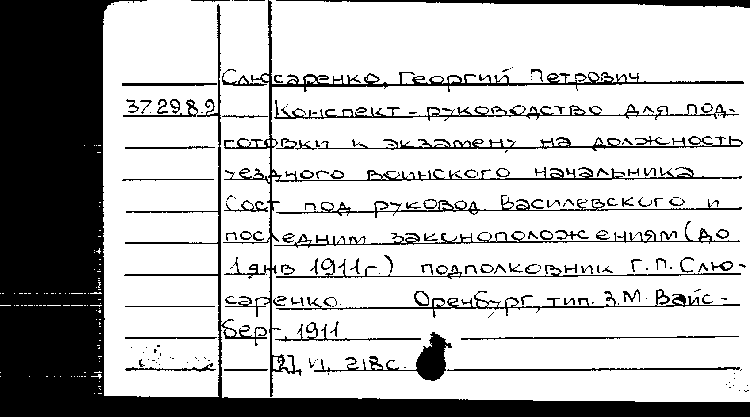 Слюсаренко, Георгий Петрович.
37.29.8.9 Конспект-руководство для под-
готовки к экзамену на должность
уездного воинского начальника.
Сост. под руковод. Василевского и
последним законоположениям (до
1 янв. 1911 г.) подполковник Г.П. Слю-
саренко. Оренбург, тип. З.М. Вайс-
берг, 1911.
[2], VI, 218 с.